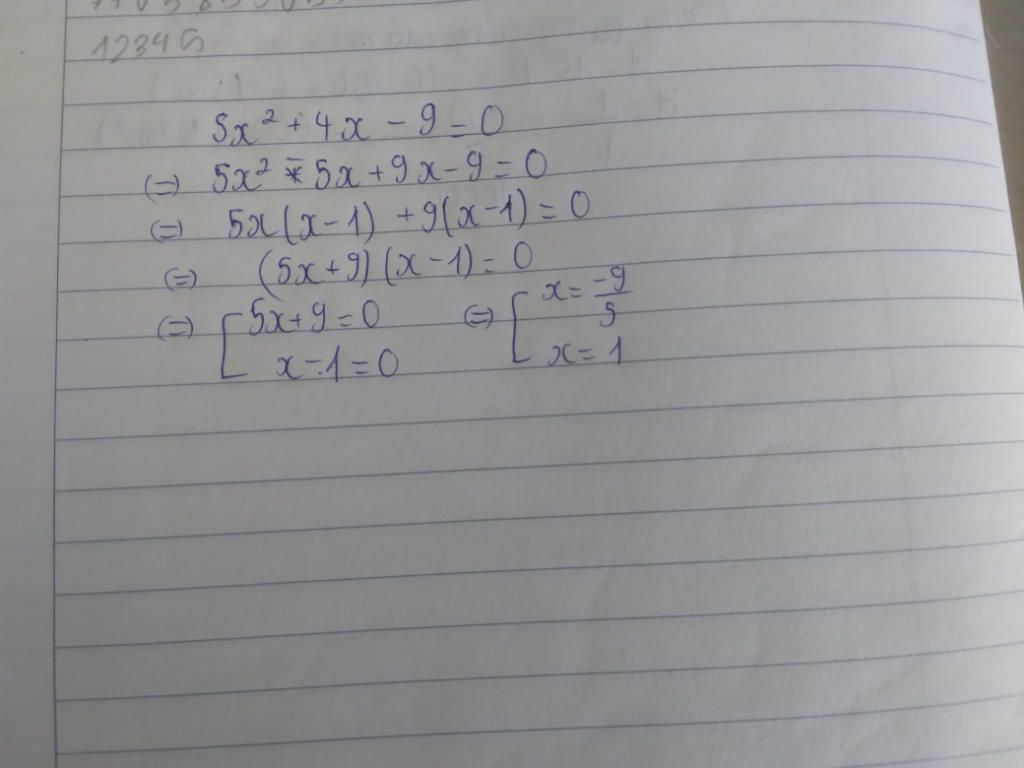 12345
5x² + 4x - 9 = 0
(=) 5x² - 5x + 9x - 9 = 0
(=) 5x(x-1) + 9(x-1) = 0
(=) (5x+9)(x-1) = 0
(=) [ 5x+9=0 (=) [ x = -9/5
x-1=0 x=1